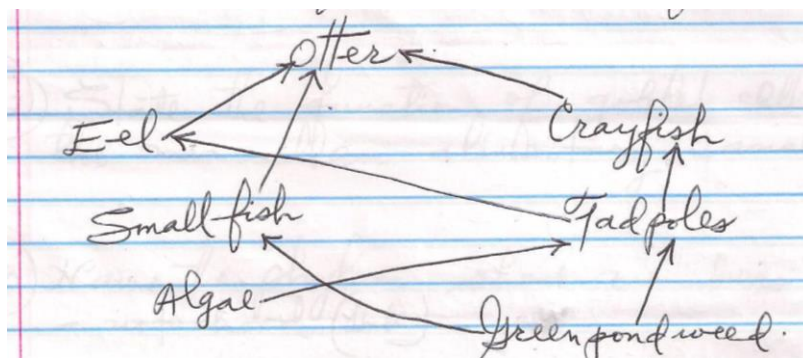 Otter
Eel Crayfish
Small fish Tadpoles
Algae
Green pond weed.